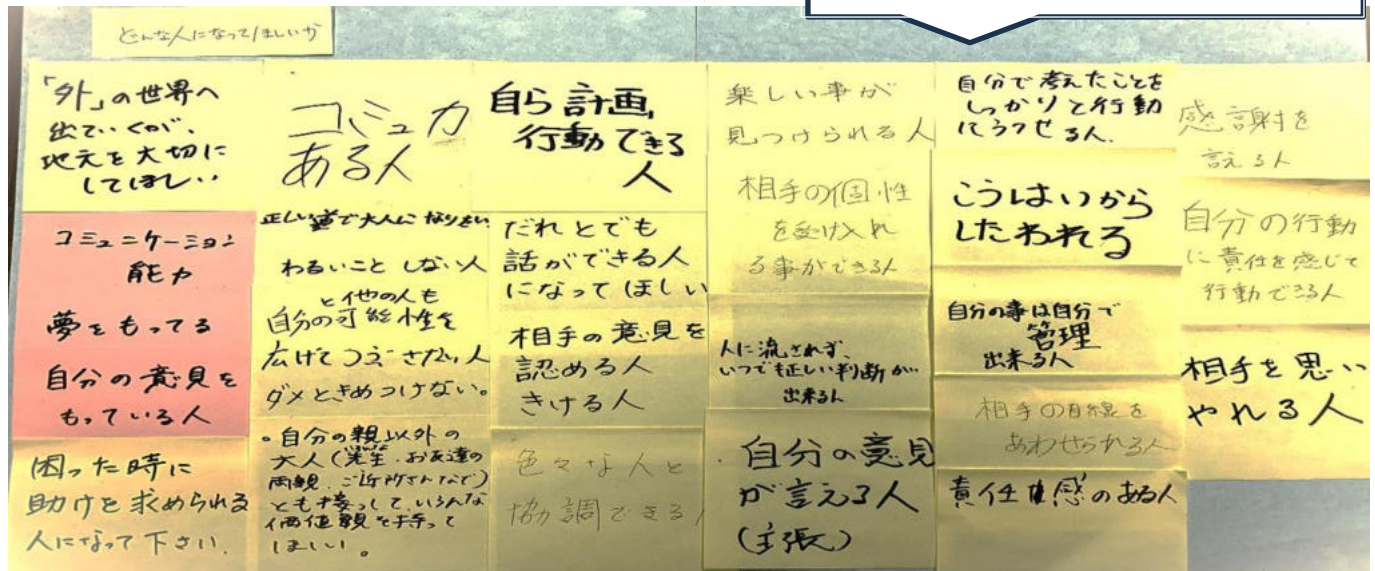 どんな人になってほしいか
「外」の世界へ
出ていくが、
地元を大切に
してほしい
コミュニケーション
能力
夢をもってる
自分の意見を
もっている人
困った時に
助けを求められる
人になって下さい.
コミュ力
ある人
正しい道で大人になりたい
わるいことしない人
と他の人も
自分の可能性を
広げてつぶさない人
ダメときめつけない。
・自分の親以外の
大人(先生・お友達の
両親、ご近所さんなど)
とも接っして、いろんな
価値観を持って
ほしい。
自ら計画,
行動できる
人
だれとでも
話ができる人
になってほしい
相手の意見を
認める人
きける人
色々な人と
協調できる人
楽しい事が
見つけられる人
相手の個性
を受け入れ
る事ができる人
人に流されず、
いつでも正しい判断が
出来る人
自分の意見
が言える人
(主張)
自分で考えたことを
しっかりと行動
にうつせる人.
こうはいから
したわれる
自分の事は自分で
管理
出来る人
相手の目線を
あわせられる人
責任感のある人
感謝を
言える人
自分の行動
に責任を感じて
行動できる人
相手を思い
やれる人